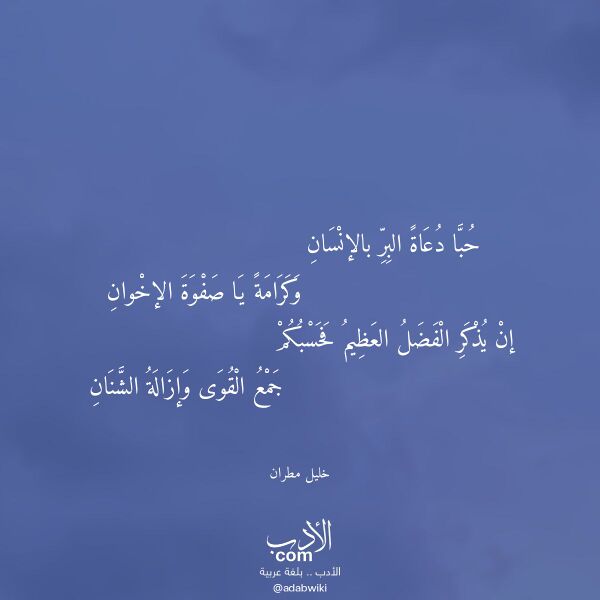 حُبَّا دُعَاةً البِرِّ بالإنْسَانِ
وَكَرَامَةً يَا صَفْوَةَ الإخْوانِ
إنْ يُذْكَرِ الْفَضَلُ العَظِيمُ فَحَسْبُكُمْ
جَمْعُ الْقُوَى وَإزَالَةُ الشَّنَانِ
خليل مطران
الأدب
com
الأدب .. بلغة عربية
@adabwiki